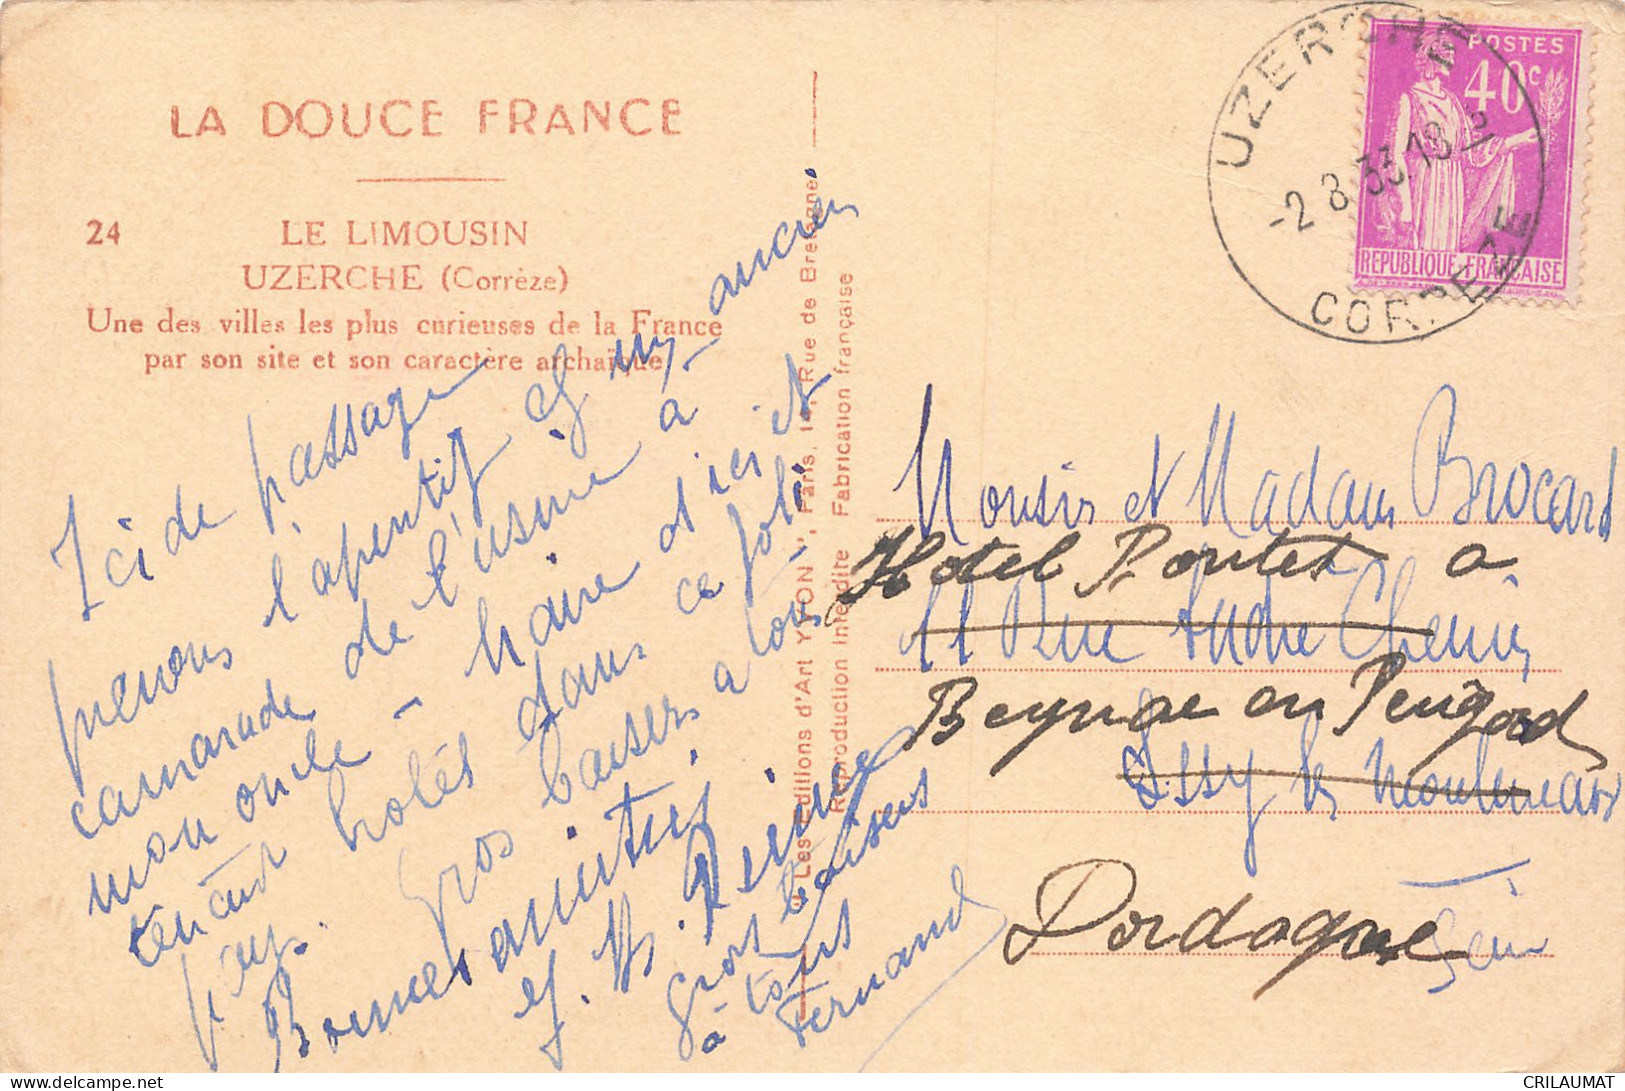 LA DOUCE FRANCE
24 LE LIMOUSIN
UZERCHE (Corrèze)
Une des villes les plus curieuses de la France
par son site et son caractère archaïque
Ici de passage
prenons l'aperitif chez un ancien
camarade de l'usine à
mon oncle - d'ici et
tenant hotel dans ce joli
pays. Gros baisers a tous
Bonnes amitiés
Gros baisers
à tous
Fernand
"Les Editions d'Art YVON", Paris, Rue de Bretagne
Reproduction Interdite Fabrication française
UZERCHE
-2 8 33
CORREZE
POSTES
40c
REPUBLIQUE FRANCAISE
Monsieur et Madame Brocard
Hotel Pontet a
11 Rue André Chenier
Beynac en Perigord
Issy les Moulineaux
Dordogne
Seine
CRILAUMAT